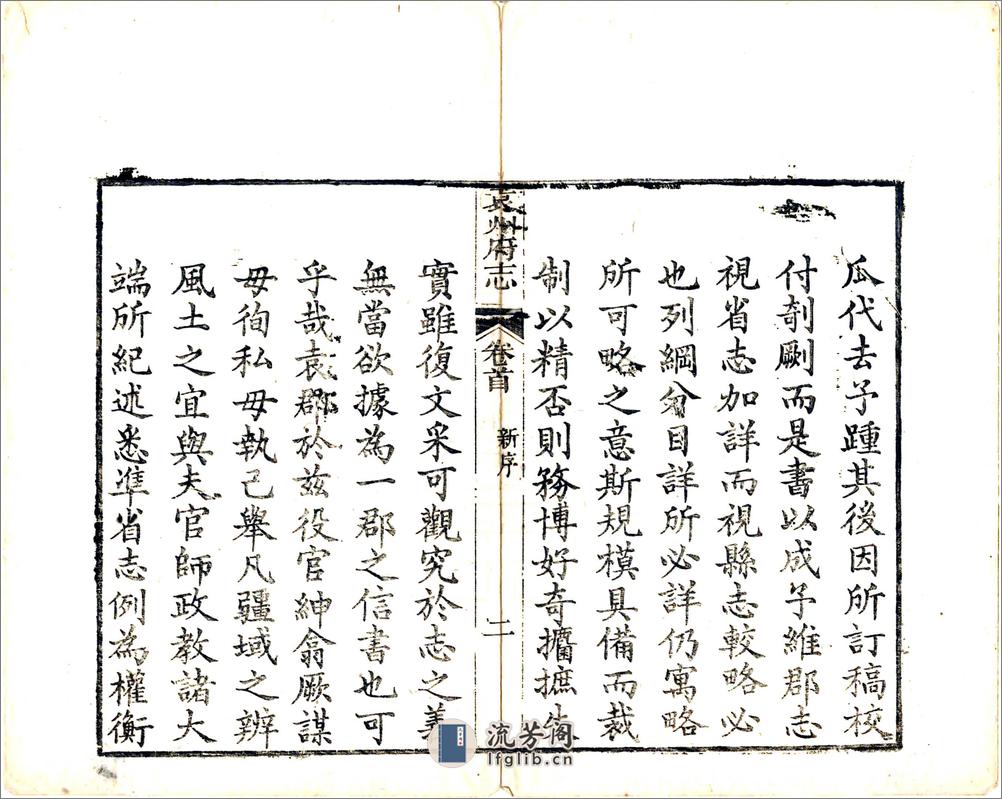 瓜代去予踵其後因所訂稿校
付剞劂而是書以成予維郡志
視省志加詳而視縣志較略必
也列綱分目詳所必詳仍寓略
所可略之意斯規模具備而裁
制以精否則務博好奇攟摭失
袁州府志
卷首
新序
二
實雖復文采可觀究於志之義
無當欲據為一郡之信書也可
乎哉袁郡於茲役官紳翕厥謀
毋徇私毋執己舉凡疆域之辨
風土之宜與夫官師政教諸大
端所紀述悉準省志例為權衡
流芳阁
lfglib.cn